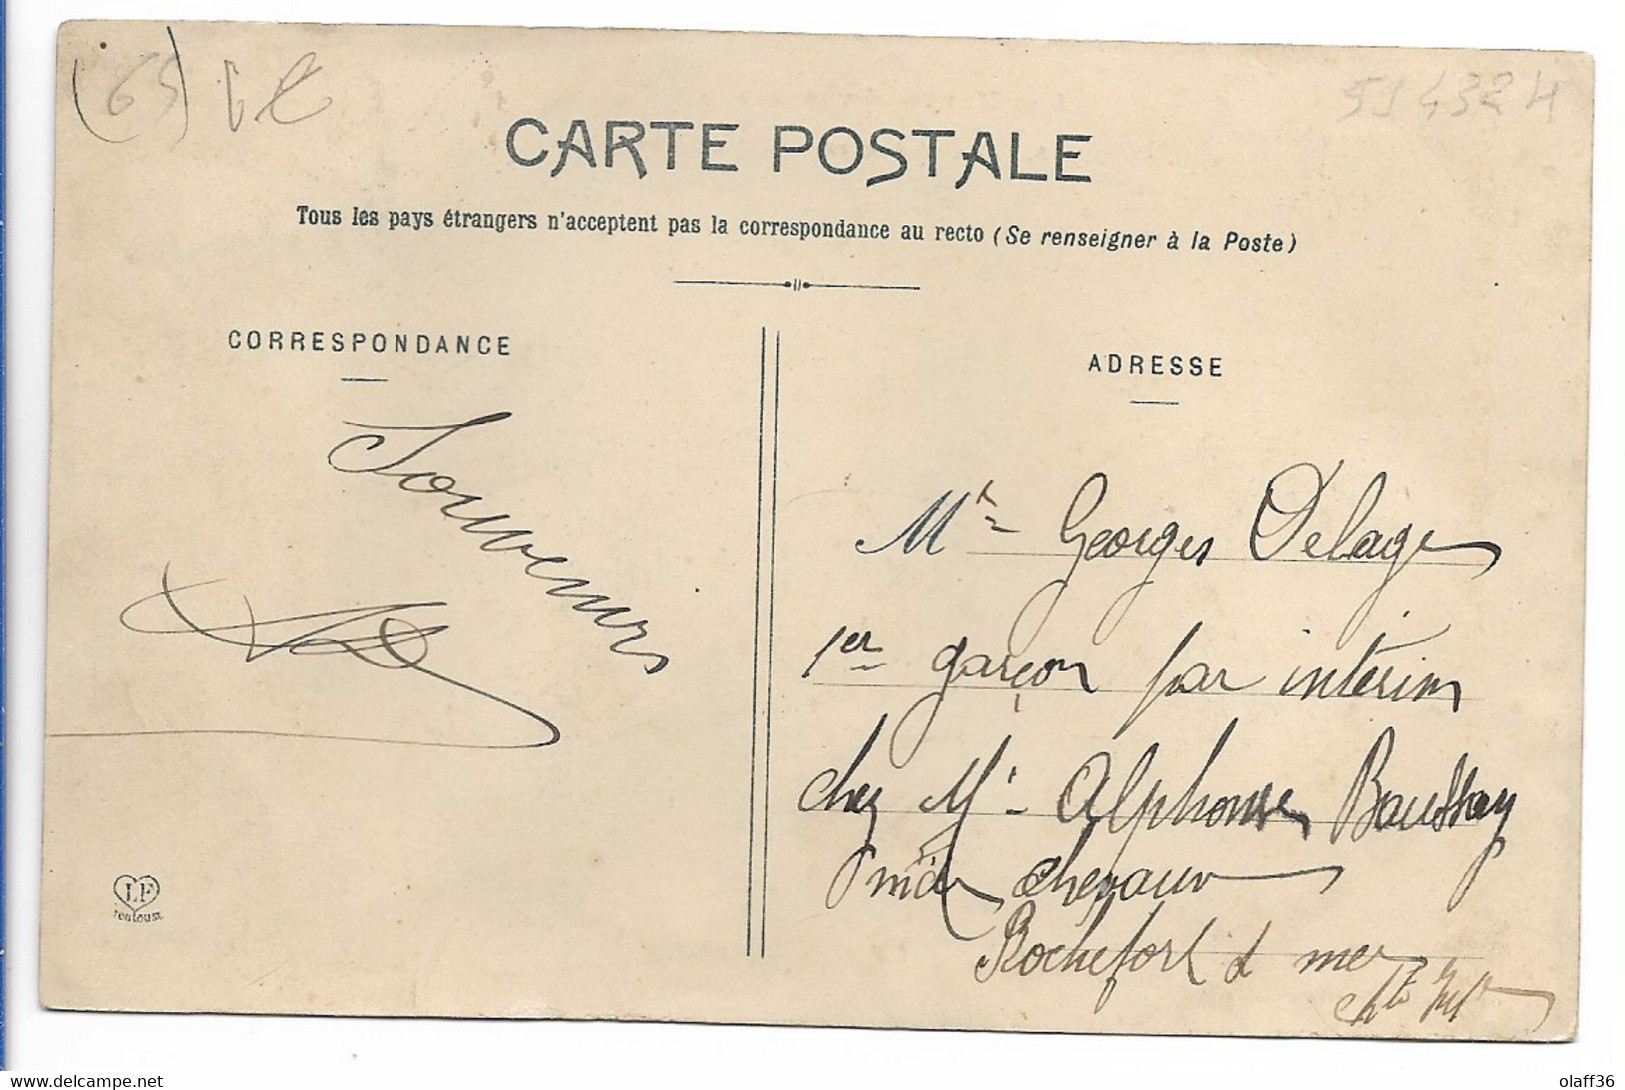 (65)
59432H
CARTE POSTALE
Tous les pays étrangers n'acceptent pas la correspondance au recto (Se renseigner à la Poste)
CORRESPONDANCE
ADRESSE
Souvenirs
Mr Georges Delage
1er garçon par intérim
chez Mr Alphonse Boussay
Md chevaux
Rochefort s mer
Chte Infre
LF
Toulouse
olaff36